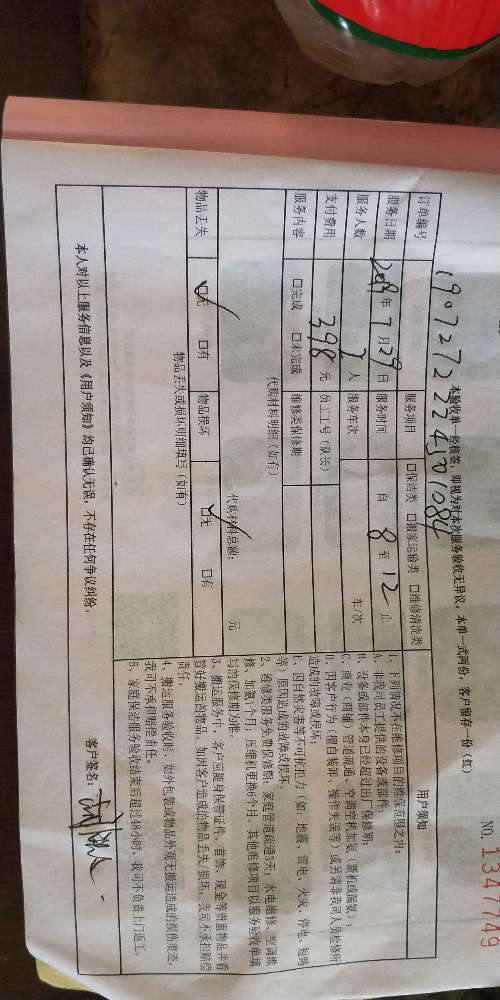 NO. 1347749
本验收单一经核签，即视为对本次服务验收无异议，本单一式两份，客户留存一份（红）
订单编号 190727224301084
服务项目 □保洁类 □搬家运输类 □维修清洗类
服务日期 2019年7月29日 服务时间 自 8 至 12 止
服务人数 人 服务车次 车/次
支付费用 398 元 员工工号（队长）
服务内容 □完成 □未完成 维修类保修期
代购材料明细（如有）
代购材料总额： 元
物品丢失 □无 □有 物品损坏 □无 □有
物品丢失或损坏明细填写（如有）
用户须知
1、下列情况不在维修项目的维保范围之内：
A、非我司员工提供的设备或部件；
B、设备或部件本身已经超过出厂保修期；
C、商业（商铺）管道疏通、空调空机加氨（新机或漏氨）；
D、因客户行为（擅自装卸、操作失误等）或另请非我司人员检修所
造成的故障或损坏；
E、因自然灾害等不可抗拒力（如：地震、雷电、火灾、停电、短路
等）原因造成的故障或损坏。
2、维修类服务免费保修期：家庭管道疏通3天；水电维修、空调维
修、加氨1个月；压缩机更换6个月，其他维修项目以服务验收单填
写的保修期为准。
3、搬运服务中，客户应随身保管证件、首饰、现金等贵重物品并看
管好搬运的物品，如因客户造成的物品丢失/损坏，我司不承担赔偿
责任。
4、搬运服务验收时，如外包装或物品外观无搬运造成的损伤痕迹，
我司不承担赔偿责任。
5、家庭保洁服务验收结束后超过48小时，我司不负责上门返工。
本人对以上服务信息以及《用户须知》均已确认无误，不存在任何争议纠纷。
客户签名：